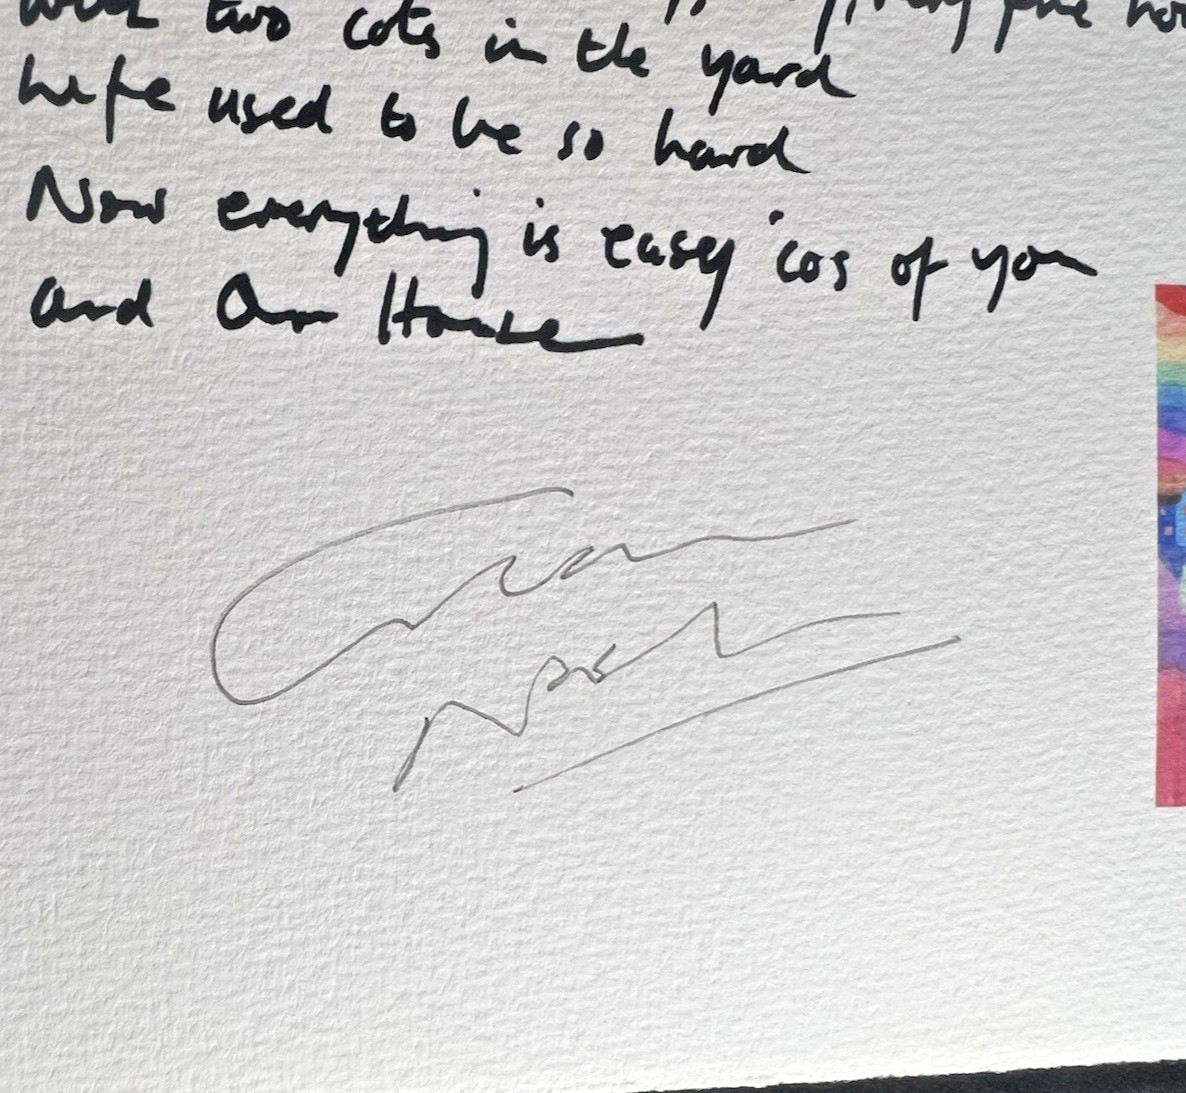 with two cats in the yard
Life used to be so hard
Now everything is easy 'cos of you
and Our House
Graham
Nash